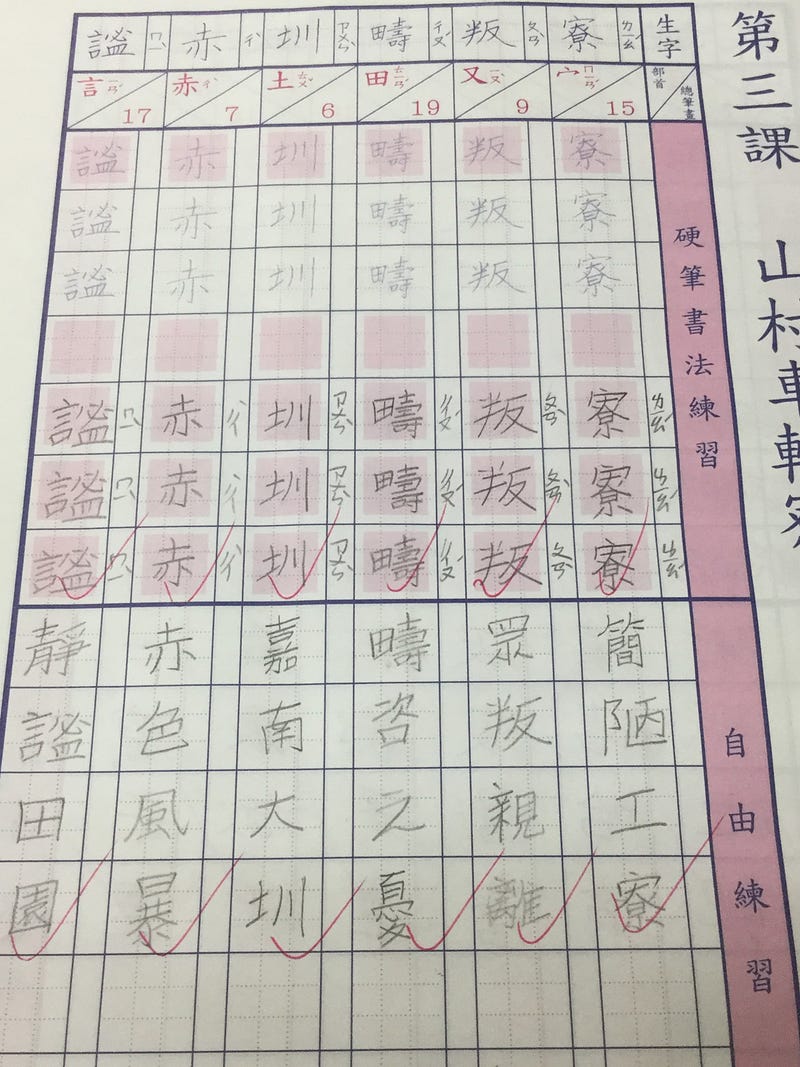 第三課 山村車
生字
部首 總筆畫
硬筆書法練習
自由練習
寮 ㄌㄧㄠˊ
宀 ㄇㄧㄢˊ 15
寮
寮
寮
寮 ㄌㄧㄠˊ
寮 ㄌㄧㄠˊ
寮 ㄌㄧㄠˊ
簡陋工寮
叛 ㄆㄢˋ
又 ㄧㄡˋ 9
叛
叛
叛
叛 ㄆㄢˋ
叛 ㄆㄢˋ
叛 ㄆㄢˋ
眾叛親離
疇 ㄔㄡˊ
田 ㄊㄧㄢˊ 19
疇
疇
疇
疇 ㄔㄡˊ
疇 ㄔㄡˊ
疇 ㄔㄡˊ
疇咨之憂
圳 ㄗㄨㄣˋ
土 ㄊㄨˇ 6
圳
圳
圳
圳 ㄗㄨㄣˋ
圳 ㄗㄨㄣˋ
圳 ㄗㄨㄣˋ
嘉南大圳
赤 ㄔˋ
赤 ㄔˋ 7
赤
赤
赤
赤 ㄔˋ
赤 ㄔˋ
赤 ㄔˋ
赤色風暴
謐 ㄇㄧˋ
言 ㄧㄢˊ 17
謐
謐
謐
謐 ㄇㄧˋ
謐 ㄇㄧˋ
謐 ㄇㄧˋ
靜謐田園